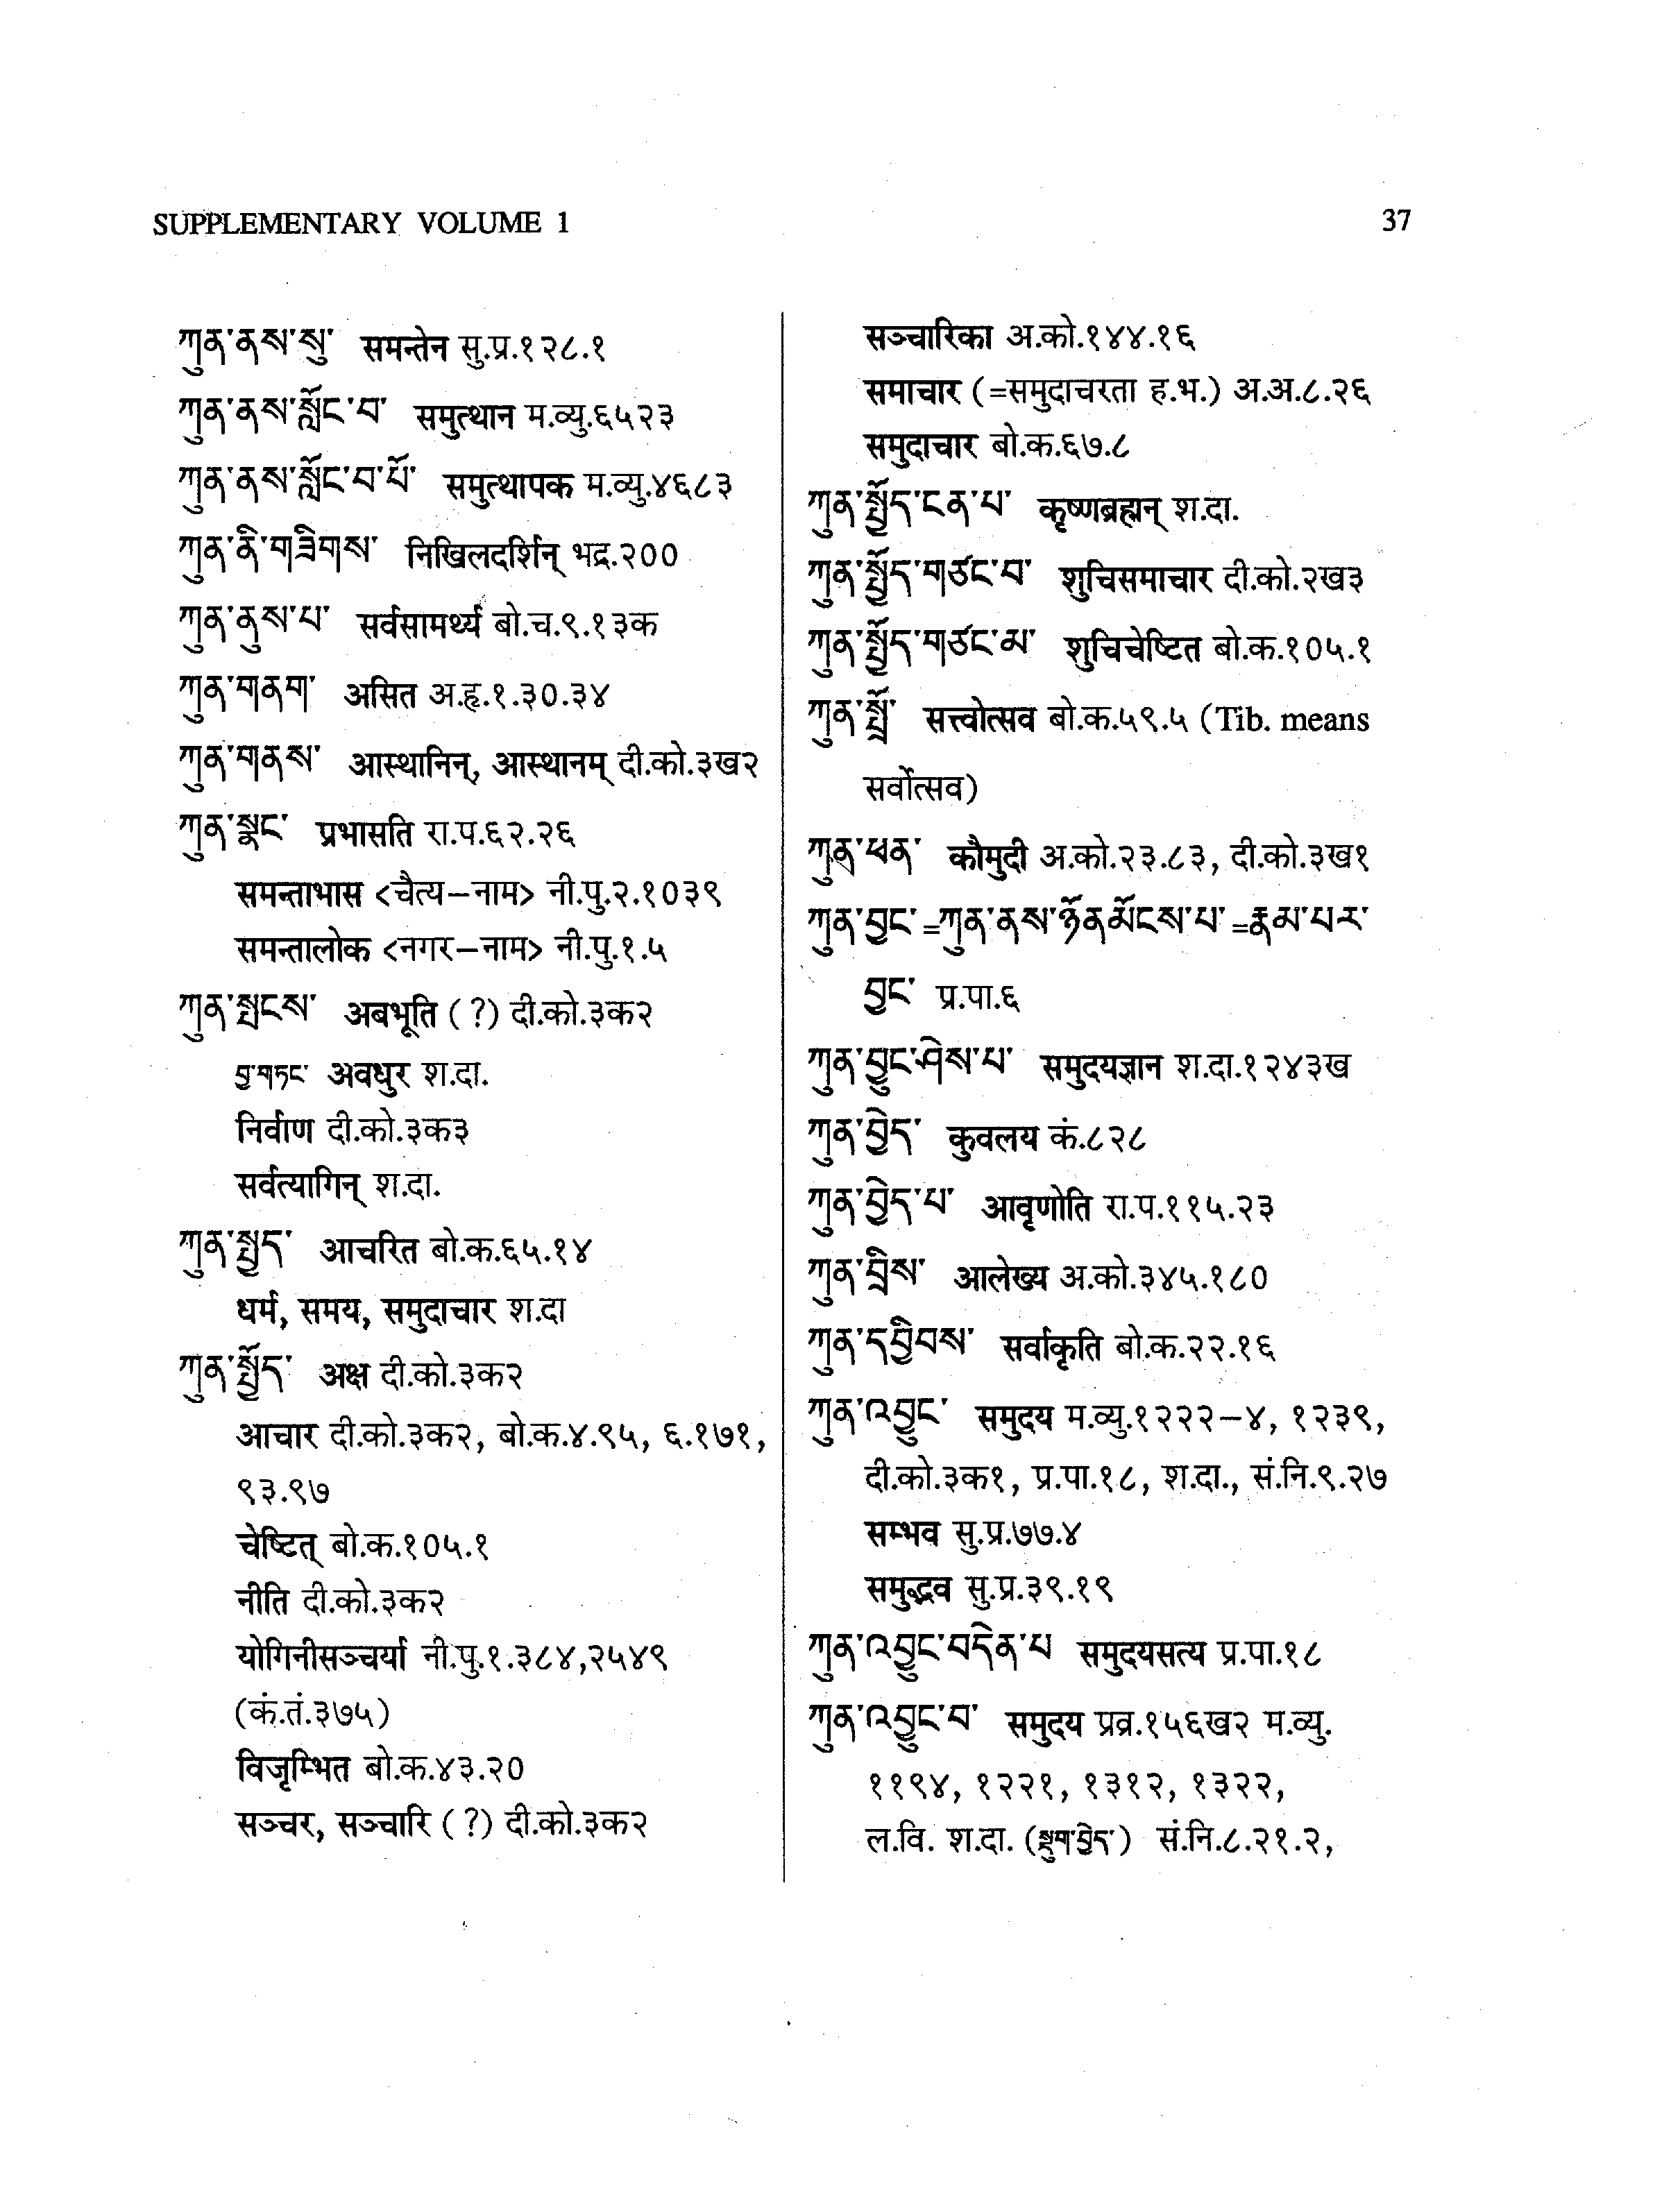 SUPPLEMENTARY VOLUME 1
37
ཀུན་ནས་སུ་ समन्तेन सु.प्र.१२८.१
ཀུན་ནས་སློང་བ་ समुत्थान म.व्यु.६५२३
ཀུན་ནས་སློང་བ་པོ་ समुत्थापक म.व्यु.४६८३
ཀུན་ནི་གཟིགས་ निखिलदर्शिन् भद्र.२००
ཀུན་ནུས་པ་ सर्वसामर्थ्य बो.च.९.१३क
ཀུན་གནག་ असित अ.हृ.१.३०.३४
ཀུན་གནས་ आस्थानिन्, आस्थानम् दी.को.३ख२
ཀུན་སྣང་ प्रभासति रा.प.६२.२६
समन्ताभास <चैत्य–नाम> नी.पु.२.१०३९
समन्तालोक <नगर–नाम> नी.पु.१.५
ཀུན་སྤངས་ अबभूति (?) दी.को.३क२
བྱ་གཏང་ अवधुर श.दा.
निर्वाण दी.को.३क३
सर्वत्यागिन् श.दा.
ཀུན་སྤྱད་ आचरित बो.क.६५.१४
धर्म, समय, समुदाचार श.दा
ཀུན་སྤྱོད་ अक्ष दी.को.३क२
आचार दी.को.३क२, बो.क.४.९५, ६.१७१,
९३.९७
चेष्टित् बो.क.१०५.१
नीति दी.को.३क२
योगिनीसञ्चर्या नी.पु.१.३८४,२५४९
(कं.तं.३७५)
विजृम्भित बो.क.४३.२०
सञ्चर, सञ्चारि (?) दी.को.३क२
सञ्चारिका अ.को.१४४.१६
समाचार (=समुदाचरता ह.भ.) अ.अ.८.२६
समुदाचार बो.क.६७.८
ཀུན་སྤྱོད་ངན་པ་ कृष्णब्रह्मन् श.दा.
ཀུན་སྤྱོད་གཙང་བ་ शुचिसमाचार दी.को.२ख३
ཀུན་སྤྱོད་གཙང་མ་ शुचिचेष्टित बो.क.१०५.१
ཀུན་སྤྲོ་ सत्त्वोत्सव बो.क.५९.५ (Tib. means
सर्वोत्सव)
ཀུན་ཕན་ कौमुदी अ.को.२३.८३, दी.को.३ख१
ཀུན་བྱང་=ཀུན་ནས་ཉོན་མོངས་པ་=རྣམ་པར་
བྱང་ प्र.पा.६
ཀུན་བྱུང་ཤེས་པ་ समुदयज्ञान श.दा.१२४३ख
ཀུན་བྱེད་ कुवलय कं.८२८
ཀུན་བྱེད་པ་ आवृणोति रा.प.११५.२३
ཀུན་བྲིས་ आलेख्य अ.को.३४५.१८०
ཀུན་དབྱིབས་ सर्वाकृति बो.क.२२.१६
ཀུན་འབྱུང་ समुदय म.व्यु.१२२२–४, १२३९,
दी.को.३क१, प्र.पा.१८, श.दा., सं.नि.९.२७
सम्भव सु.प्र.७७.४
समुद्भव सु.प्र.३९.१९
ཀུན་འབྱུང་བདེན་པ समुदयसत्य प्र.पा.१८
ཀུན་འབྱུང་བ་ समुदय प्रव्र.१५६ख२ म.व्यु.
११९४, १२२१, १३१२, १३२२,
ल.वि. श.दा. (སྡུག་བྱེད་) सं.नि.८.२१.२,